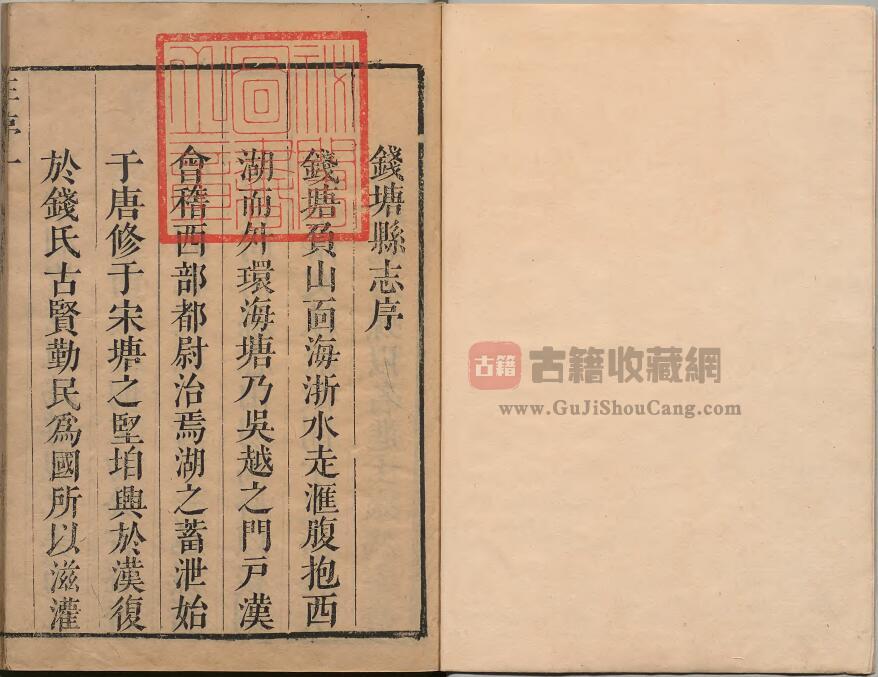 錢塘縣志序
錢塘負山面海浙水走滙腹抱西
湖而外環海塘乃吳越之門戸漢
會稽西部都尉治焉湖之蓄泄始
于唐修于宋塘之堅垍興於漢復
於錢氏古賢勤民爲國所以滋灌
古籍
古籍收藏網
www.GuJiShouCang.com